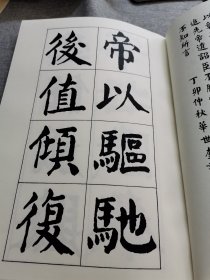 追先帝遺詔臣不
不知所言 丁卯仲秋華世
帝以驅馳
後值傾復